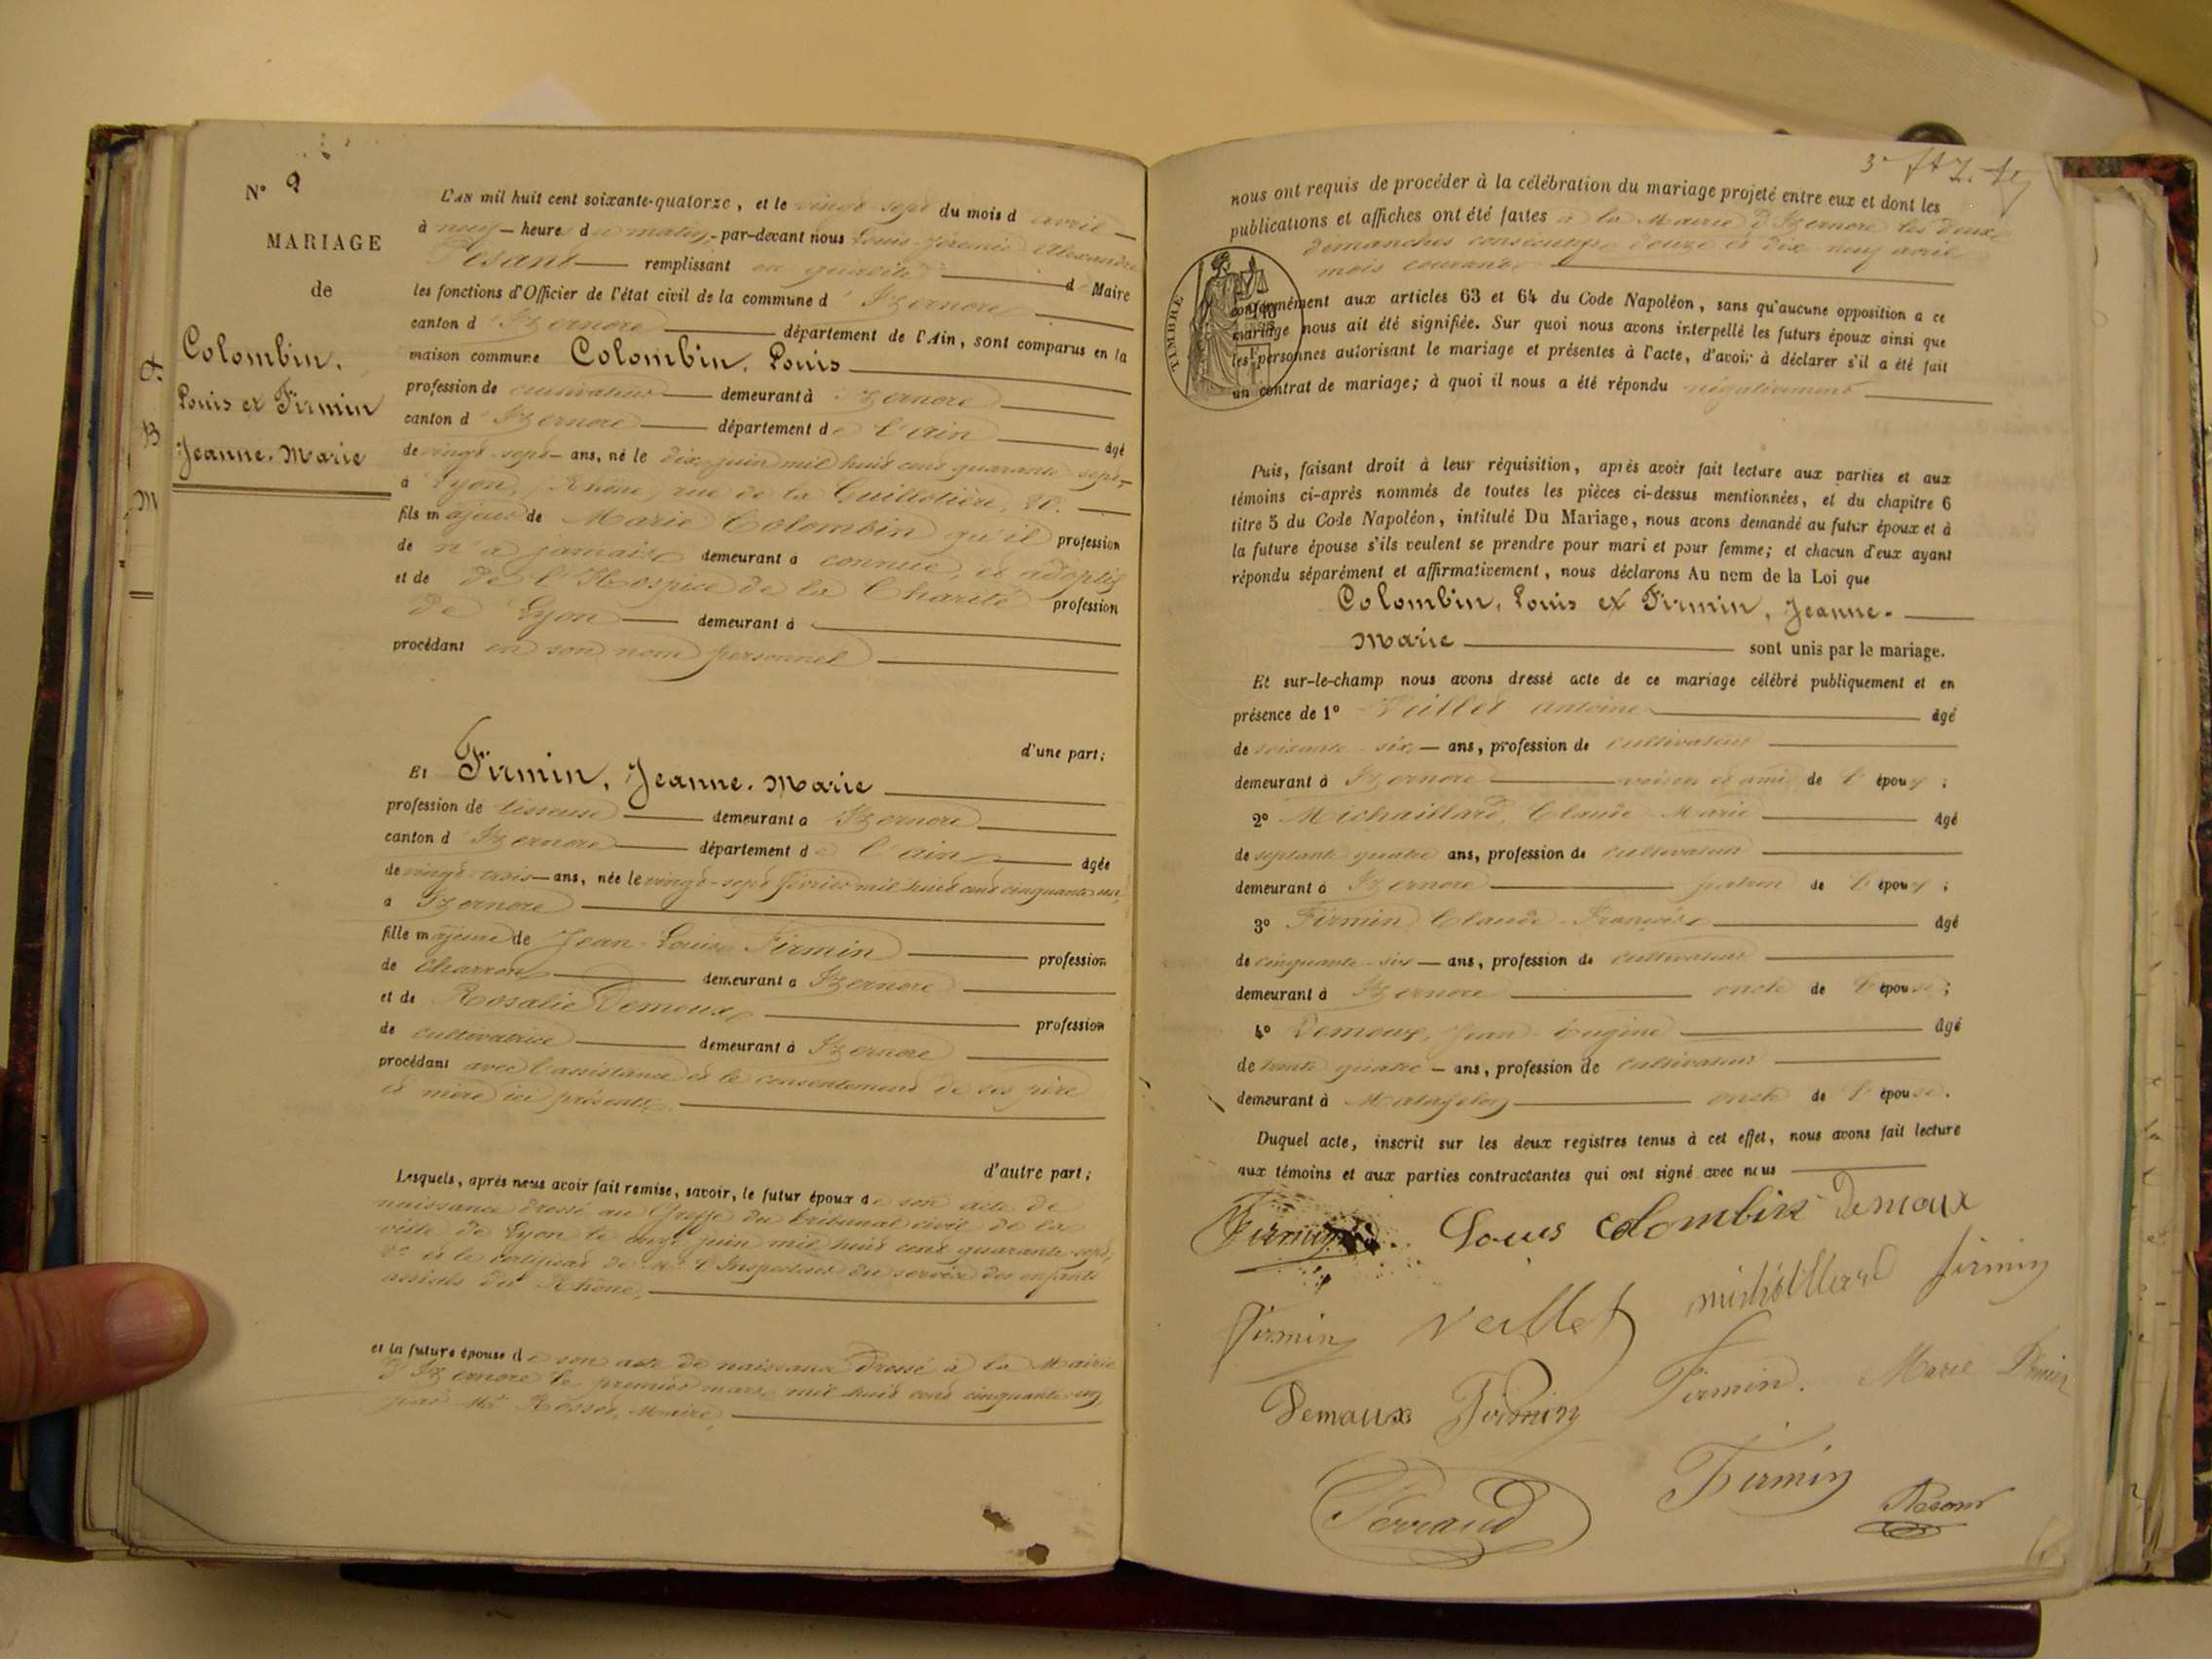 N° 2
MARIAGE
de
Colombin,
Louis et Firmin
Jeanne-Marie
B
M
L'AN mil huit cent soixante-quatorze, et le vingt-sept du mois d'avril
à neuf heures du matin par-devant nous Louis Alexandre
remplissant en qualité d Maire
les fonctions d'Officier de l'état civil de la commune d'Izernore
canton d'Izernore département de l'Ain, sont comparus en la
maison commune Colombin, Louis
profession de cultivateur demeurant à Izernore
canton d'Izernore département de l'Ain âgé
de vingt-sept ans, né le dix juin mil huit cent quarante-sept
à Lyon, Rhône, rue de la Guillotière,
fils majeur de Marie Colombin qu'il profession
de n'a jamais demeurant à connue, et adoptif
et de de l'Hospice de la Charité profession
de Lyon demeurant à
procédant en son nom personnel
d'une part;
Et Firmin, Jeanne-Marie
profession de tisseuse demeurant à Izernore
canton d'Izernore département de l'Ain âgée
de vingt-trois ans, née le vingt-sept février mil huit cent cinquante-un,
à Izernore
fille majeure de Jean-Louis Firmin profession
de charron demeurant à Izernore
et de Rosalie Demoux profession
de cultivatrice demeurant à Izernore
procédant avec l'assistance et le consentement de ses père
et mère ici présents
d'autre part;
Lesquels, après nous avoir fait remise, savoir, le futur époux de son acte de
naissance dressé au Greffe du tribunal civil de la
ville de Lyon le onze juin mil huit cent quarante-sept,
2° et le certificat de Mr l'Inspecteur du service des enfants
assistés du Rhône,
et la future épouse de son acte de naissance dressé à la Mairie
d'Izernore le premier mars mil huit cent cinquante-un,
par Mr Maire,
nous ont requis de procéder à la célébration du mariage projeté entre eux et dont les
publications et affiches ont été faites à la Mairie d'Izernore les deux
dimanches consécutifs douze et dix neuf avril
mois courant
TIMBRE
conformément aux articles 63 et 64 du Code Napoléon, sans qu'aucune opposition a ce
mariage nous ait été signifiée. Sur quoi nous avons interpellé les futurs époux ainsi que
les personnes autorisant le mariage et présentes à l'acte, d'avoir à déclarer s'il a été fait
un contrat de mariage; à quoi il nous a été répondu négativement
Puis, faisant droit à leur réquisition, après avoir fait lecture aux parties et aux
témoins ci-après nommés de toutes les pièces ci-dessus mentionnées, et du chapitre 6
titre 5 du Code Napoléon, intitulé Du Mariage, nous avons demandé au futur époux et à
la future épouse s'ils veulent se prendre pour mari et pour femme; et chacun d'eux ayant
répondu séparément et affirmativement, nous déclarons Au nom de la Loi que
Colombin, Louis et Firmin, Jeanne-
Marie sont unis par le mariage.
Et sur-le-champ nous avons dressé acte de ce mariage célébré publiquement et en
présence de 1° Veillet antoine âgé
de soixante-six ans, profession de cultivateur
demeurant à Izernore voisin et ami de l'époux;
2° Michaillard, Claude-Marie âgé
de septante-quatre ans, profession de cultivateur
demeurant à Izernore patron de l'époux;
3° Firmin, Claude-François âgé
de cinquante-six ans, profession de cultivateur
demeurant à Izernore oncle de l'épouse;
4° Demoux, Jean-Eugène âgé
de trente quatre ans, profession de cultivateur
demeurant à Matafelon oncle de l'épouse.
Duquel acte, inscrit sur les deux registres tenus à cet effet, nous avons fait lecture
aux témoins et aux parties contractantes qui ont signé avec nous
Firmin Louis Colombin Demoux
Firmin Veillet michaillard firmin
Demoux Firmin Firmin. Marie
Ferraud Firmin